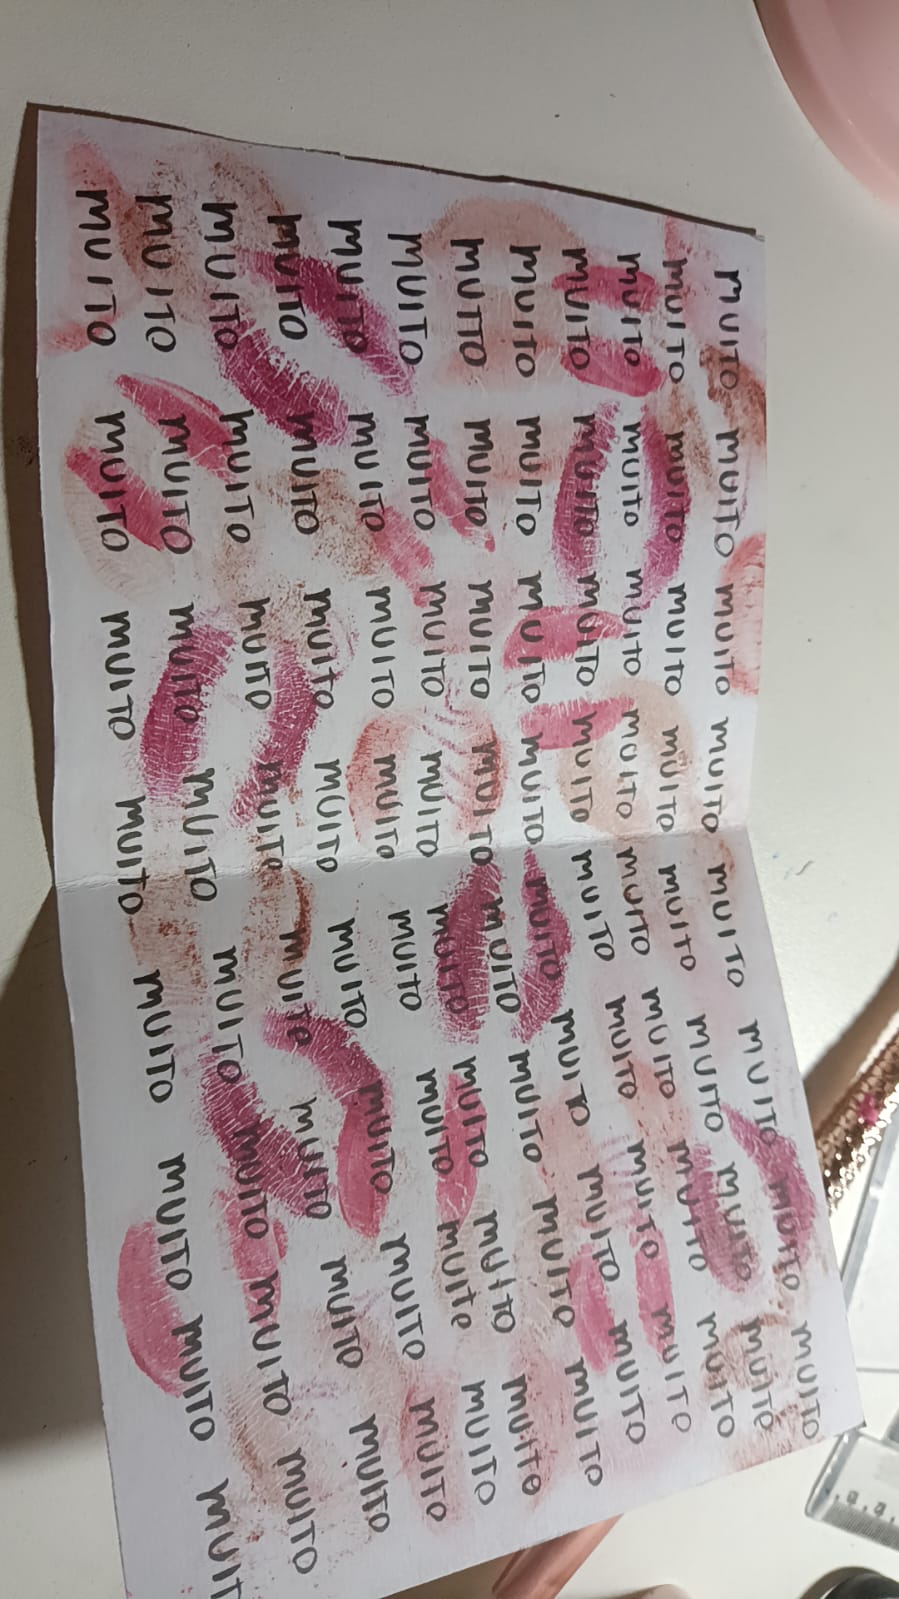 MUITO MUITO MUITO MUITO MUITO MUITO MUITO MUITO
MUITO MUITO MUITO MUITO MUITO MUITO MUITO MUITO
MUITO MUITO MUITO MUITO MUITO MUITO MUITO MUITO
MUITO MUITO MUITO MUITO MUITO MUITO MUITO MUITO
MUITO MUITO MUITO MUITO MUITO MUITO MUITO MUITO
MUITO MUITO MUITO MUITO MUITO MUITO MUITO MUITO
MUITO MUITO MUITO MUITO MUITO MUITO MUITO MUITO
MUITO MUITO MUITO MUITO MUITO MUITO MUITO MUITO
MUITO MUITO MUITO MUITO MUITO MUITO MUITO MUITO
MUITO MUITO MUITO MUITO MUITO MUITO MUITO MUITO
MUITO MUITO MUITO MUITO MUITO MUITO MUITO MUITO
MUITO MUITO MUITO MUITO MUITO MUITO MUITO MUIT